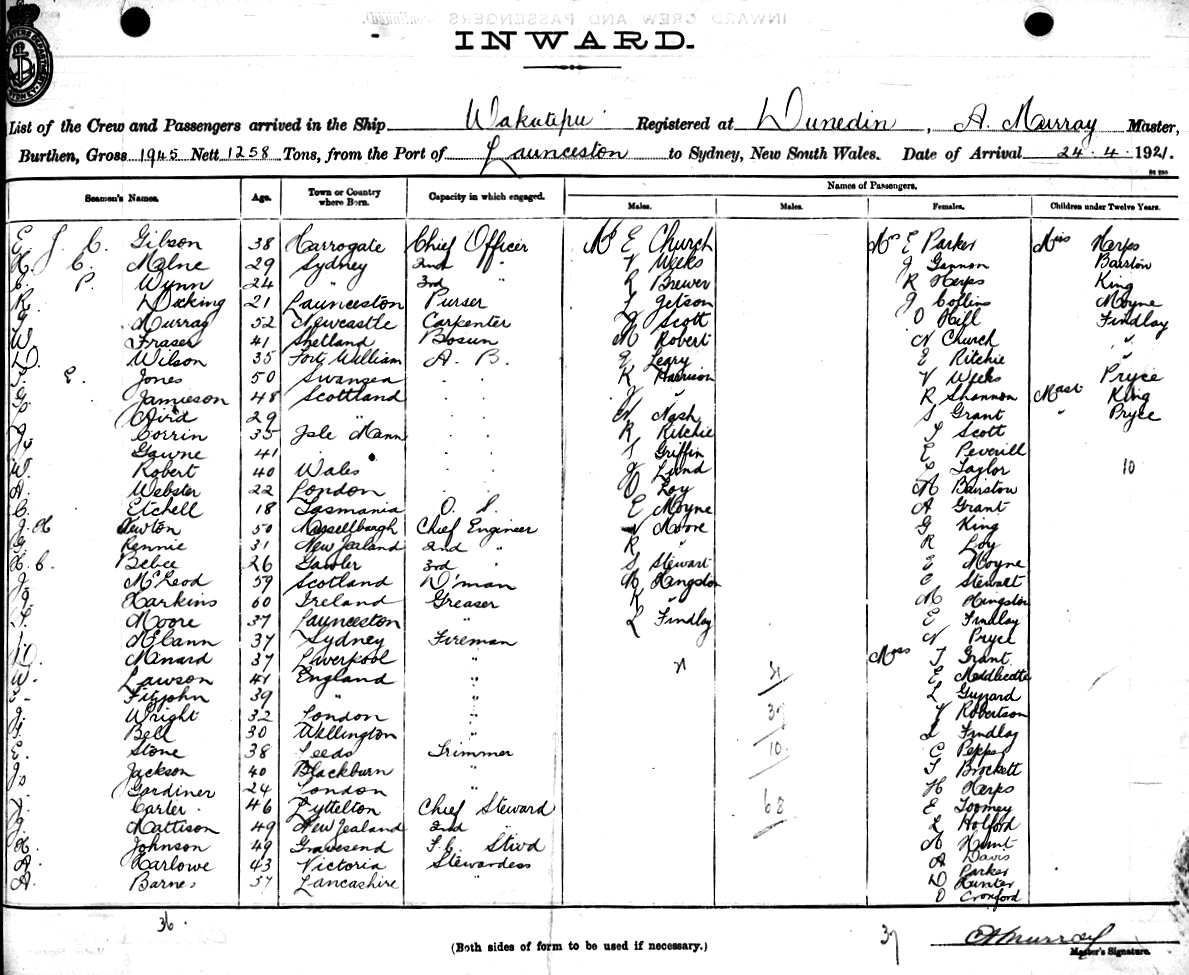 INWARD.
List of the Crew and Passengers arrived in the Ship Wakatipu Registered at Dunedin, A. Murray Master,
Burthen, Gross 1945 Nett 1258 Tons, from the Port of Launceston to Sydney, New South Wales. Date of Arrival 24.4.1921.
Names of Passengers.
Seamen's Names. Age. Town or Country where Born. Capacity in which engaged. Males. Males. Females. Children under Twelve Years.
E. J. C. Gibson 38 Harrogate Chief Officer Mr E Church Mrs E Parker Miss Herps
H. C. Milne 29 Sydney 2nd " V Weeks J Gannon Bairstow
C. P. Wynn 24 " 3rd " R Brewer R Herps King
R. Dicking 21 Launceston Purser L Jetson J Collins Moyne
J. Murray 52 Newcastle Carpenter J Scott O Findlay
W. Fraser 41 Shetland Bosun M Robert N Church "
D. Wilson 35 Fort William A. B. E Leary E Ritchie "
E. Jones 50 Swansea . . K Harrison V Weeks Pryce
G. Jamieson 48 Scottland . . J " R Shannon Mast King
29 " . . N Nash S Grant " Pryce
J. Corrin 35 Isle Mann . . R Ritchie J Scott
Gawne 41 " . . S Griffin E Peverill
W. Robert 40 Wales . . J Lund E Taylor 10
A. Webster 22 London . . O Loy M Bairstow
C. Etchell 18 Tasmania O. S. E Moyne A Grant
J. H Newton 50 Mussellbaugh Chief Engineer V Moore G King
G. Rennie 31 New Zealand 2nd " R " R Loy
H. C. Bebee 26 Gawler 3rd " S Stewart E Moyne
J. McLeod 59 Scotland D'man M Kingston C Stewart
J. Harkins 60 Ireland Greaser K " M Kingston
F. Moore 37 Launceston " L Findlay E Findlay
McCann 37 Sydney Fireman N Pryce
D. Minard 37 Liverpool " 21 21 Miss T Grant
W. Lawson 41 England " E Maddicotte
Fitzjohn 39 " " L Guzzard
J. Wright 32 London " 37 V Robertson
F. Bell 30 Wellington " L Findlay
E. Stone 38 Leeds Trimmer 10. C Pepper
J. Jackson 40 Blackburn " T Brockett
Gardiner 24 London " H Herps
Carter 46 Lyttelton Chief Steward 68 E Toomey
J. Mattison 49 New Zealand 2nd " L Holford
H. Johnson 49 Gravesend F.C. Stwd A Hunt
A. Harlowe 43 Victoria Stewardess A Davis
A. Barnes 37 Lancashire " D Parker
Hunter
O Cronford
36. 37 A Murray
(Both sides of form to be used if necessary.) Master's Signature.